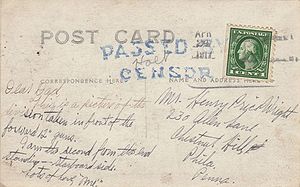 POST CARD
APR
1917
PASSED BY
Holt
CENSOR
U.S. POSTAGE
1 CENT 1
CORRESPONDENCE HERE
NAME AND ADDRESS HERE
Dear Dad
This is a picture of the
taken in front of the
forward 12" guns.
I am the second from the end
standing - starboard side.
Lots of love, "Me"
Mr. Henry Price Wright
230 Allen Lane
Chestnut Hill
Phila
Penna.